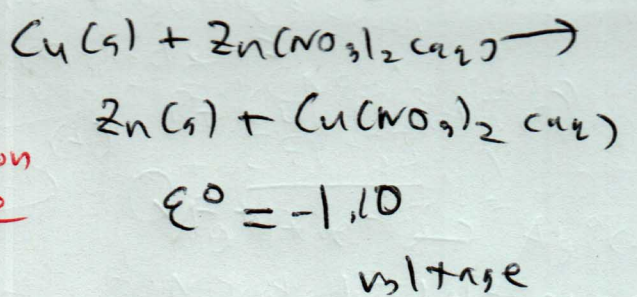 Cu(s) + Zn(NO3)2 (aq) →
Zn(s) + Cu(NO3)2 (aq)
on
ε° = -1.10
voltage